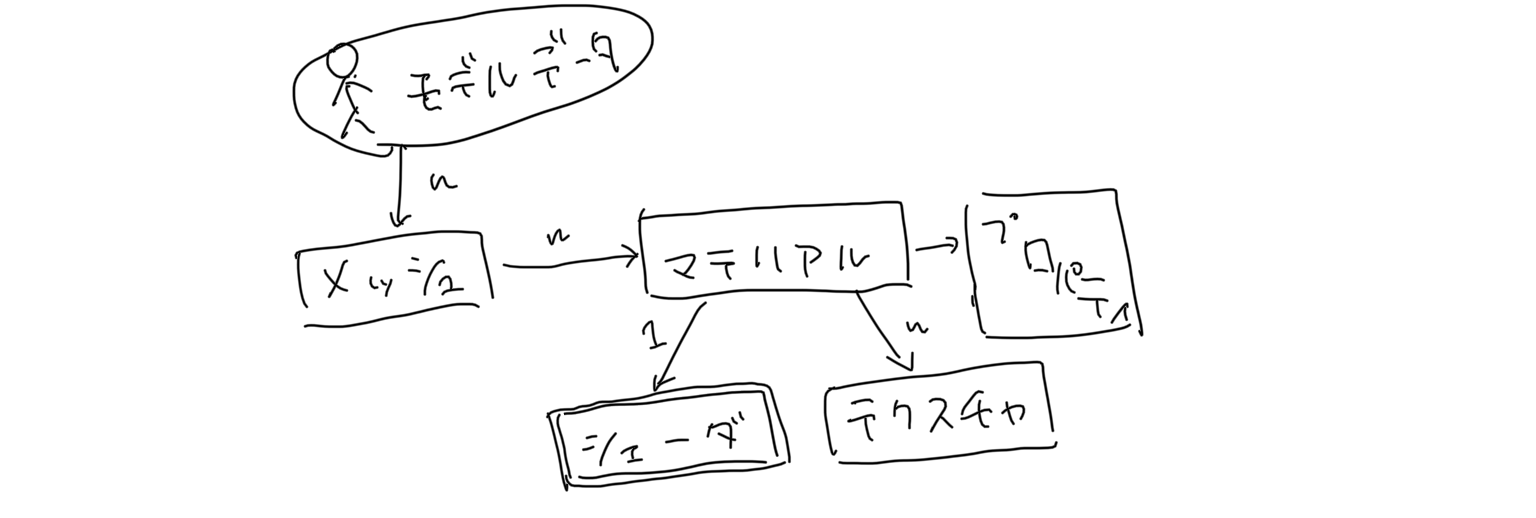 モデルデータ
n
メッシュ
n
マテリアル
プロパティ
1
n
シェーダ
テクスチャ